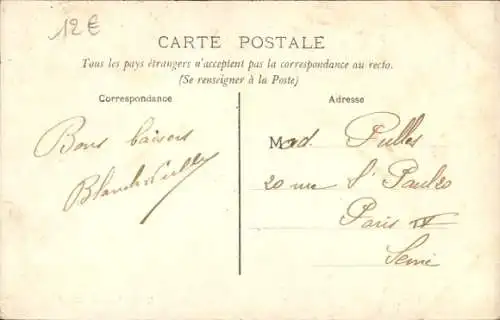 12€
CARTE POSTALE
Tous les pays étrangers n'acceptent pas la correspondance au recto.
(Se renseigner à la Poste)
Correspondance
Bons baisers
Adresse
Mad. Pulles
20 rue St Paul 20
Paris IV
Seine